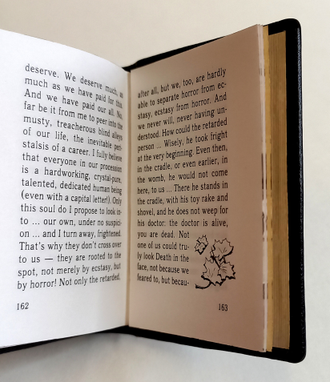 deserve. We deserve much, as
much as we have paid for this.
And we have paid our all. No,
far be it from me to peer into the
musty, treacherous blind alleys
of our life, the inevitable peri-
stalsis of a career. I fully believe
that everyone in our procession
is a hardworking, crystal-pure,
talented, dedicated human being
(even with a capital letter!). Only
this soul do I propose to look in-
to ... our own, under no suspici-
on ... and I turn away, frightened.
That's why they don't cross over
to us — they are rooted to the
spot, not merely by ecstasy, but
by horror! Not only the retarded,
162
after all, but we, too, are hardly
able to separate horror from ec-
stasy, ecstasy from horror. And
we never will, never having un-
derstood. How could the retarded
person ... Wisely, he took fright
at the very beginning. Even then,
in the cradle, or even earlier, in
the womb, he would not come
here, to us ... There he stands in
the cradle, with his toy rake and
shovel, and he does not weep for
his doctor: the doctor is alive,
you are dead. Not
one of us could tru-
ly look Death in the
face, not because we
feared to, but becau-
163